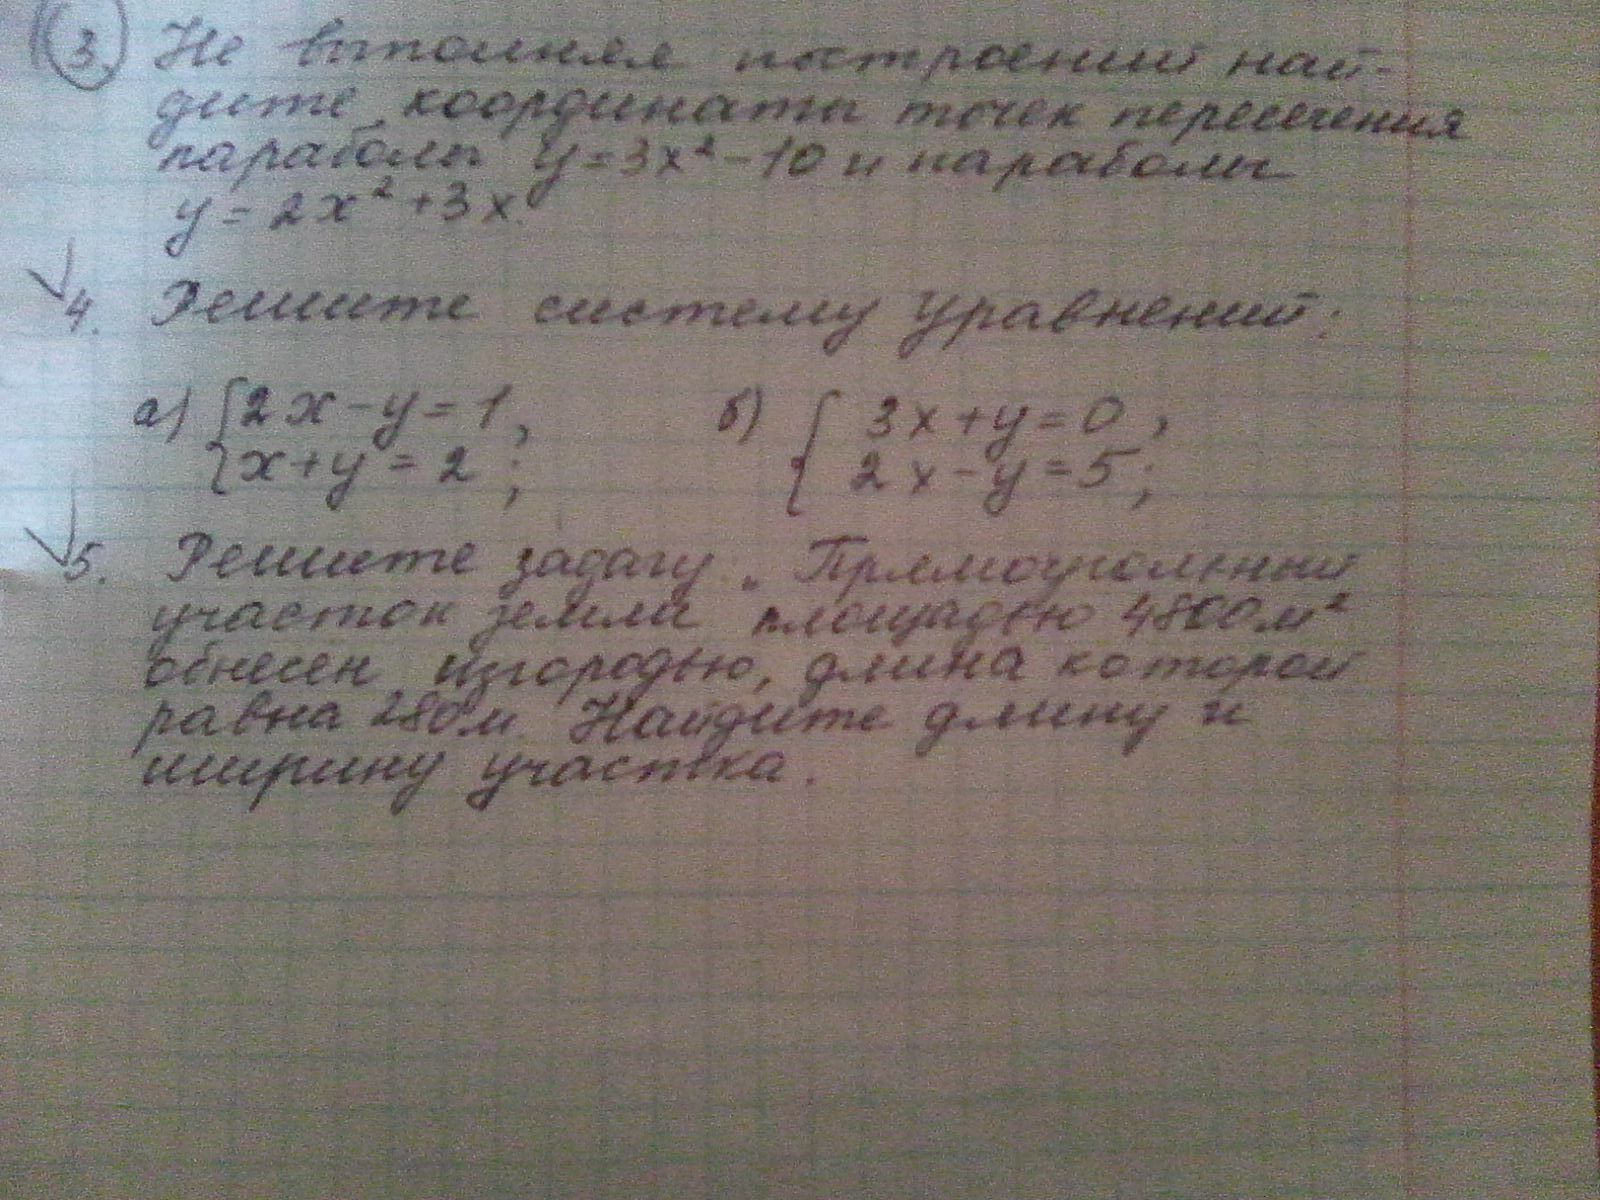 3. Не выполняя построений най-
дите координаты точек пересечения
параболы y=3x²-10 и параболы
y=2x²+3x.
4. Решите систему уравнений:
а) {2x-y=1, б) {3x+y=0,
x+y=2; 2x-y=5;
5. Решите задачу. Прямоугольный
участок земли площадью 4800м²
обнесен изгородью, длина которой
равна 280м. Найдите длину и
ширину участка.